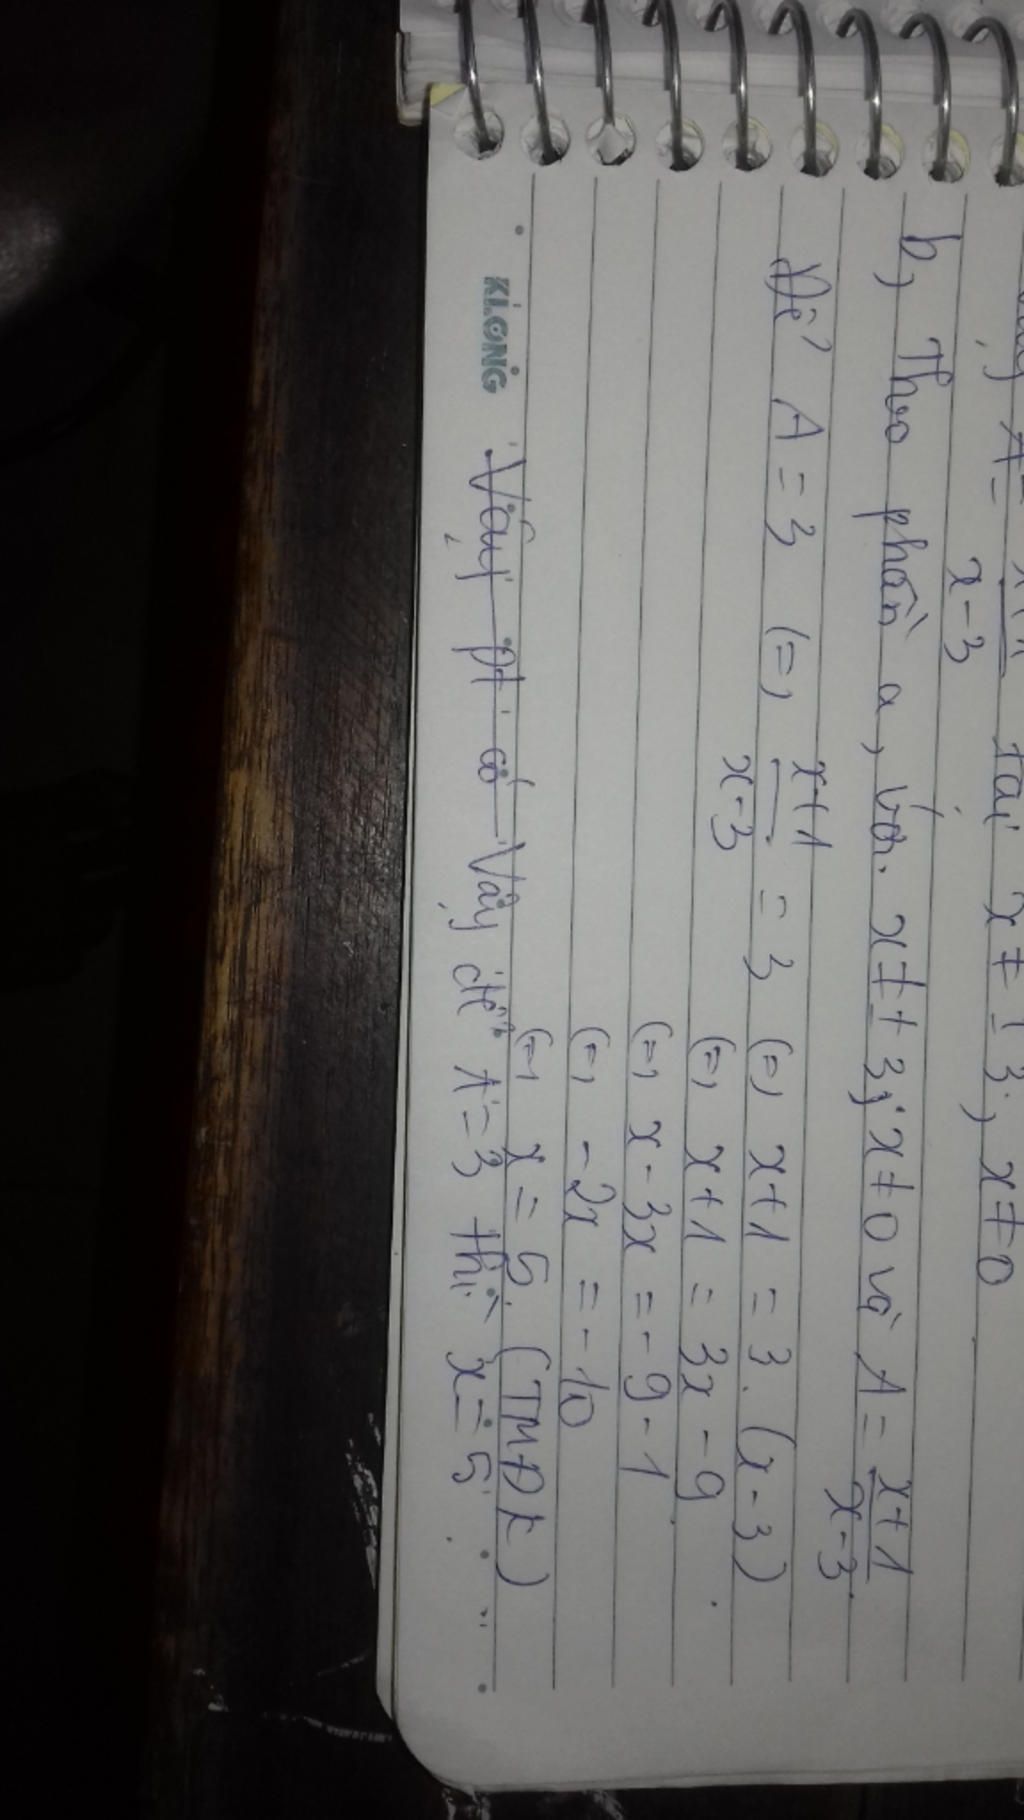 A = x+1 tại x ≠ ± 3, x ≠ 0
x-3
b, Theo phần a, với x ≠ ± 3; x ≠ 0 và A = x+1
x-3
Để A = 3 (=) x+1 = 3 (=) x+1 = 3.(x-3)
x-3
(=) x+1 = 3x-9
(=) x-3x = -9-1
(=) -2x = -10
(=) x = 5. (TMĐK)
KLONG Vậy pt có Vậy để A=3 thì x=5